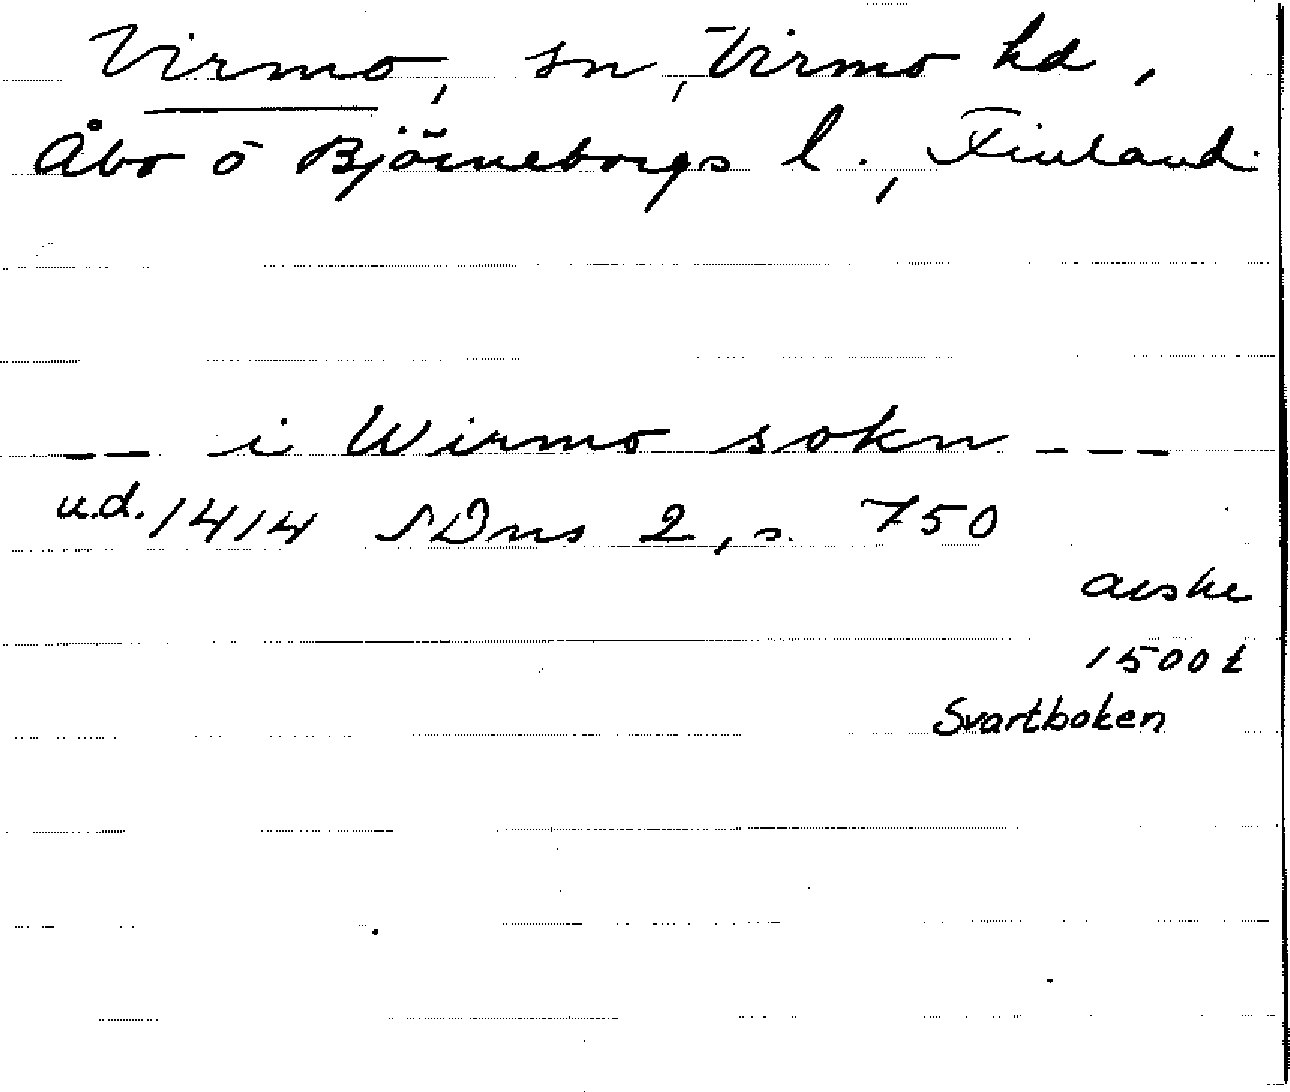 Virmo, sn, Virmo hd,
Åbo o Björneborgs l., Finland.
-- i Wirmo sokn ---
u.d. 1414 SDns 2, s. 750
avskr
1500 t
Svartboken